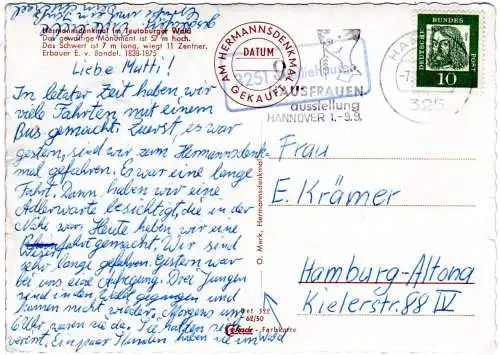 Hermannsdenkmal im Teutoburger Wald
Das gewaltige Monument ist 57 m hoch.
Das Schwert ist 7 m lang, wiegt 11 Zentner.
Erbauer E. v. Bandel. 1838-1875
Liebe Mutti!
In letzter Zeit haben wir
viele Fahrten mit einem
Bus gemacht. Zuerst, es war
gestern, sind wir zum Hermannsdenk-
mal gefahren. Es war eine lange
Fahrt. Dann haben wir eine
Adlerwarte besichtigt, die in der
Nähe war. Heute haben wir eine
Weserfahrt gemacht. Wir sind
sehr lange gefahren. Gestern war
bei uns eine Aufregung. Drei Jungen
sind in den Wald gegangen und
kamen nicht wieder. Morgens um
6 Uhr waren sie da. Sie hatten sich
verirrt. Ein paar Stunden haben sie im Wald
AM HERMANNSDENKMAL
DATUM
GEKAUFT
3251
HAUSFRAUEN
ausstellung
HANNOVER 1.-9.9.
325
DEUTSCHE BUNDESPOST
10
Frau
E. Krämer
Hamburg-Altona
Kielerstr. 88 IV
O. Merk, Hermannsdenkmal
522
62/50
Cekade-Farbkarte